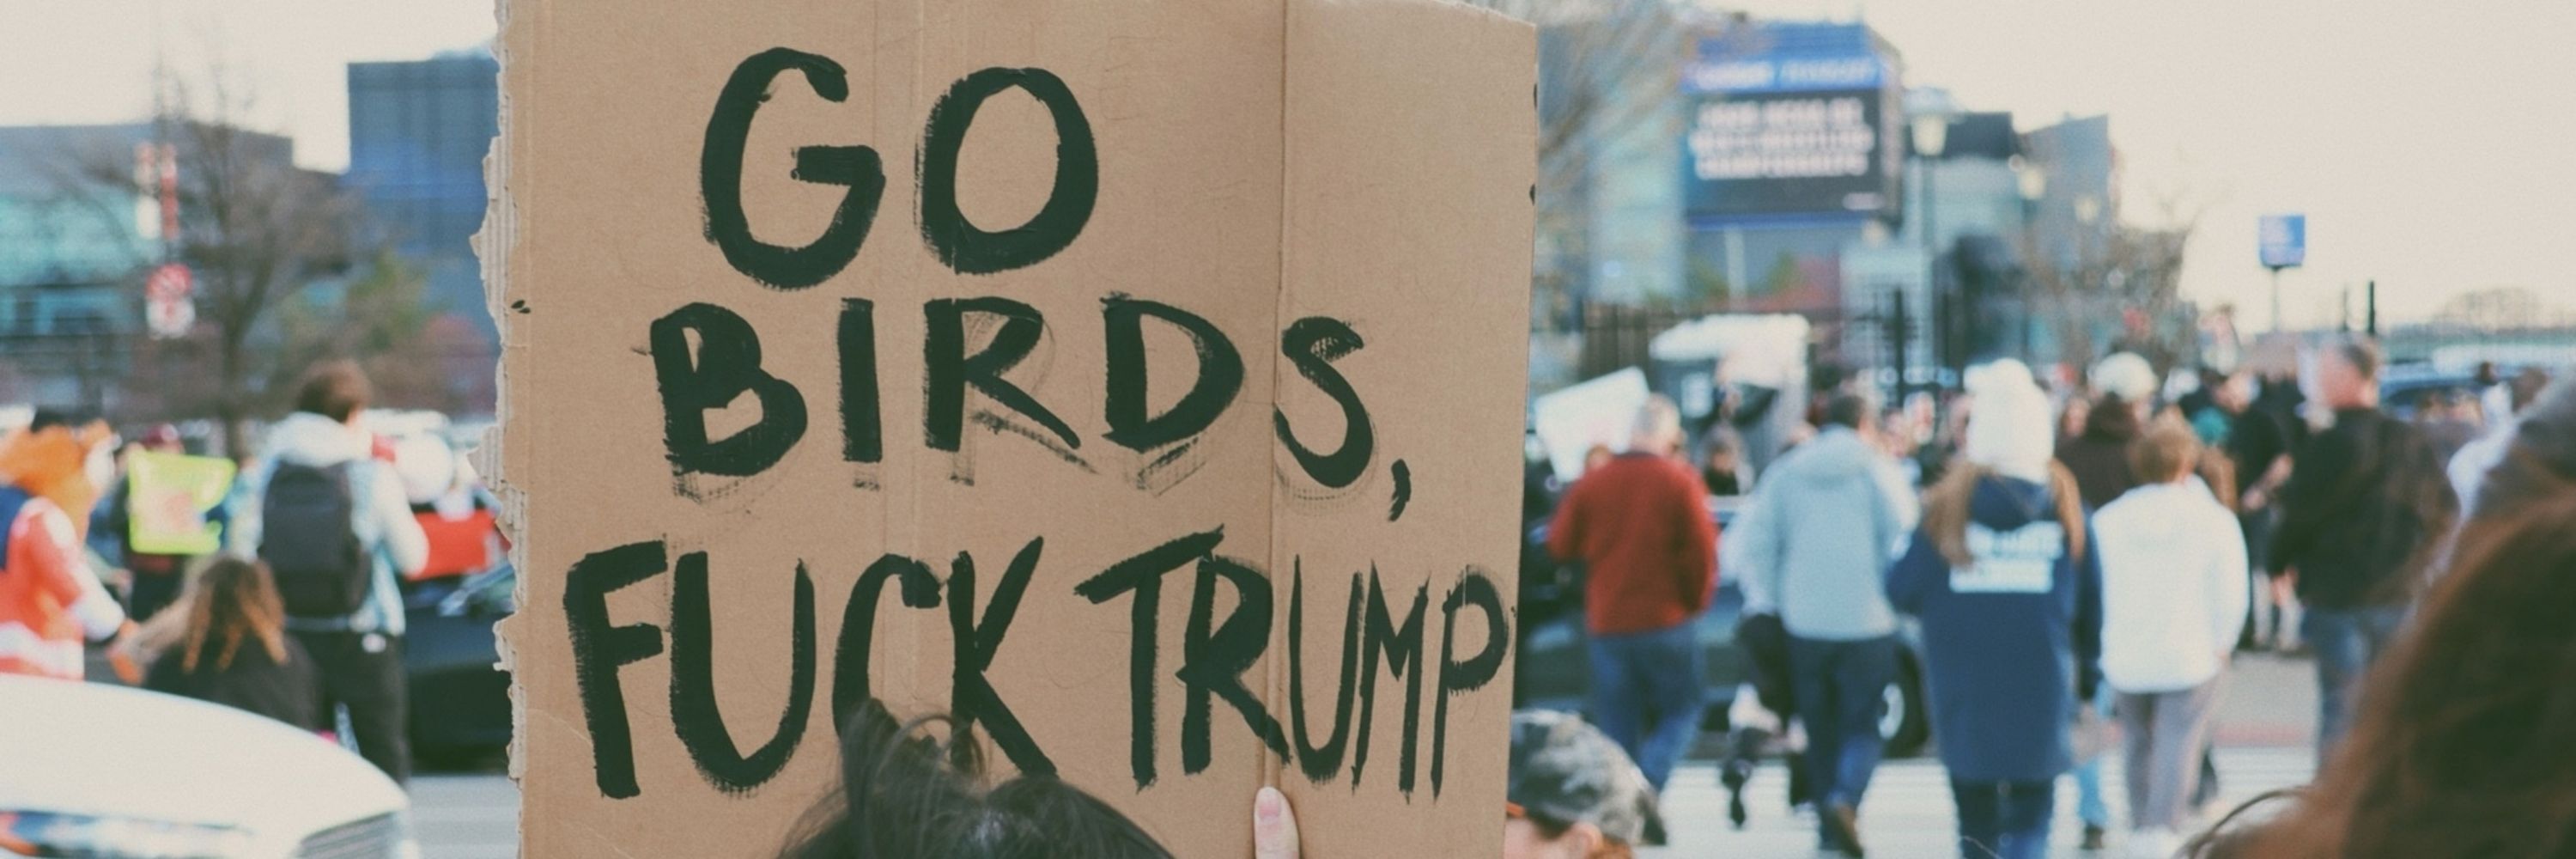 GO
BIRDS,
FUCK TRUMP